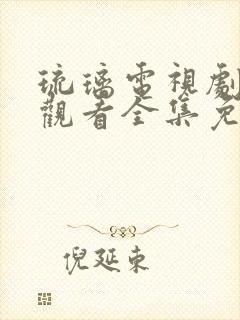 琉璃電視劇
觀看全集免
倪延東